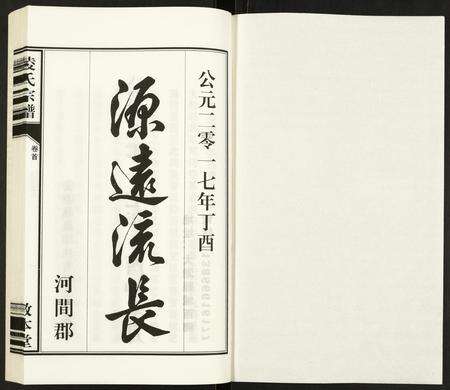 公元二零一七年丁酉
源遠流長
河間郡
凌氏宗譜
卷首
敦本堂